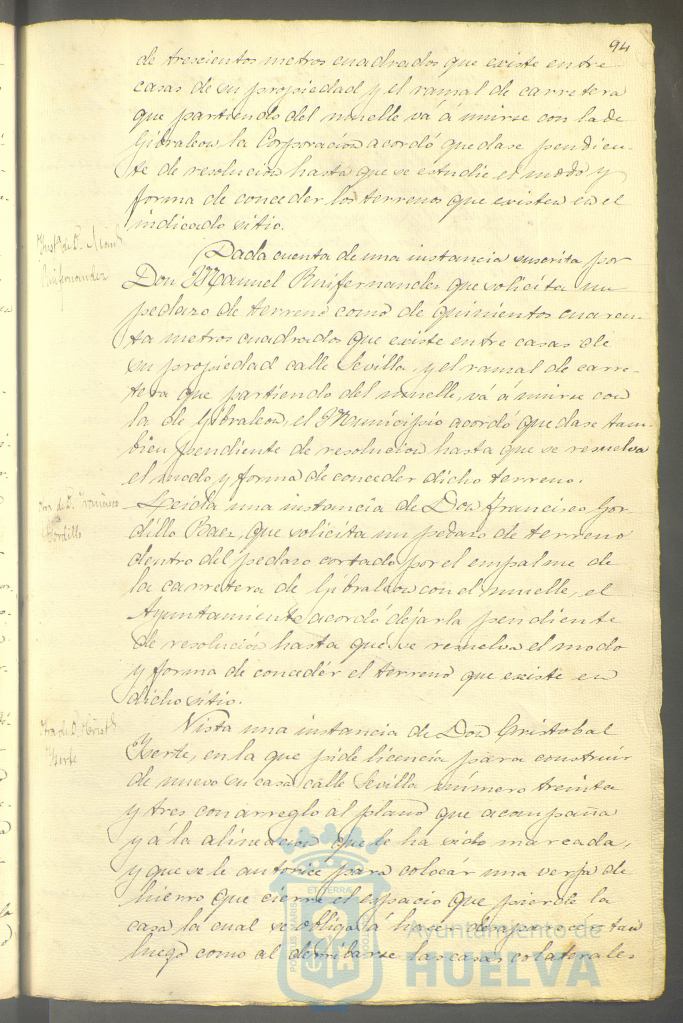 94
de trescientos metros cuadrados que existe entre
casas de su propiedad y el ramal de carretera
que partiendo del muelle vá á unirse con la de
Gibraleon la Corporacion acordó quedase pendien-
te de resolucion hasta que se estudie el modo y
forma de conceder los terrenos que existen en el
indicado sitio.
Dada cuenta de una instancia suscrita por
Don Manuel Ruifernandez que solicita un
pedazo de terreno como de quinientos cuaren-
ta metros cuadrados que existe entre casas de
su propiedad calle Sevilla, y el ramal de carre-
tera que partiendo del muelle, vá á unirse con
la de Gibraleon, el Municipio acordó quedase tam-
bien pendiente de resolucion hasta que se resuelva
el modo y forma de conceder dicho terreno.
Otra de D. Francisco
Gordillo
Leida una instancia de Don Francisco Gor-
dillo Baez, que solicita un pedazo de terreno
dentro del pedazo cortado por el empalme de
la carretera de Gibraleon con el muelle, el
Ayuntamiento acordó dejarla pendiente
de resolución hasta que se resuelva el modo
y forma de concedér el terreno que existe en
dicho sitio.
Vista una instancia de Don Cristobal
en la que pide licencia para construir
de nuevo su casa calle Sevilla número treinta
y tres con arreglo al plano que acompaña
y á la alineacion que le ha sido marcada,
y que se le autorice para colocár una verja de
hierro que cierre el espacio que pierde la
casa la cual se obliga á hacer desaparecér tan
luego como al derribarse las casas colaterales
Ayuntamiento de
HUELVA